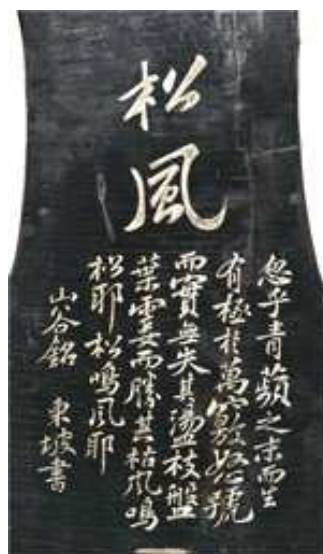 松風
忽乎青蘋之末而生
有極於萬竅怒號
而實無失其盪枝盤
葉霎而勝其枯風鳴
松耶松鳴風耶
山谷銘 東坡書